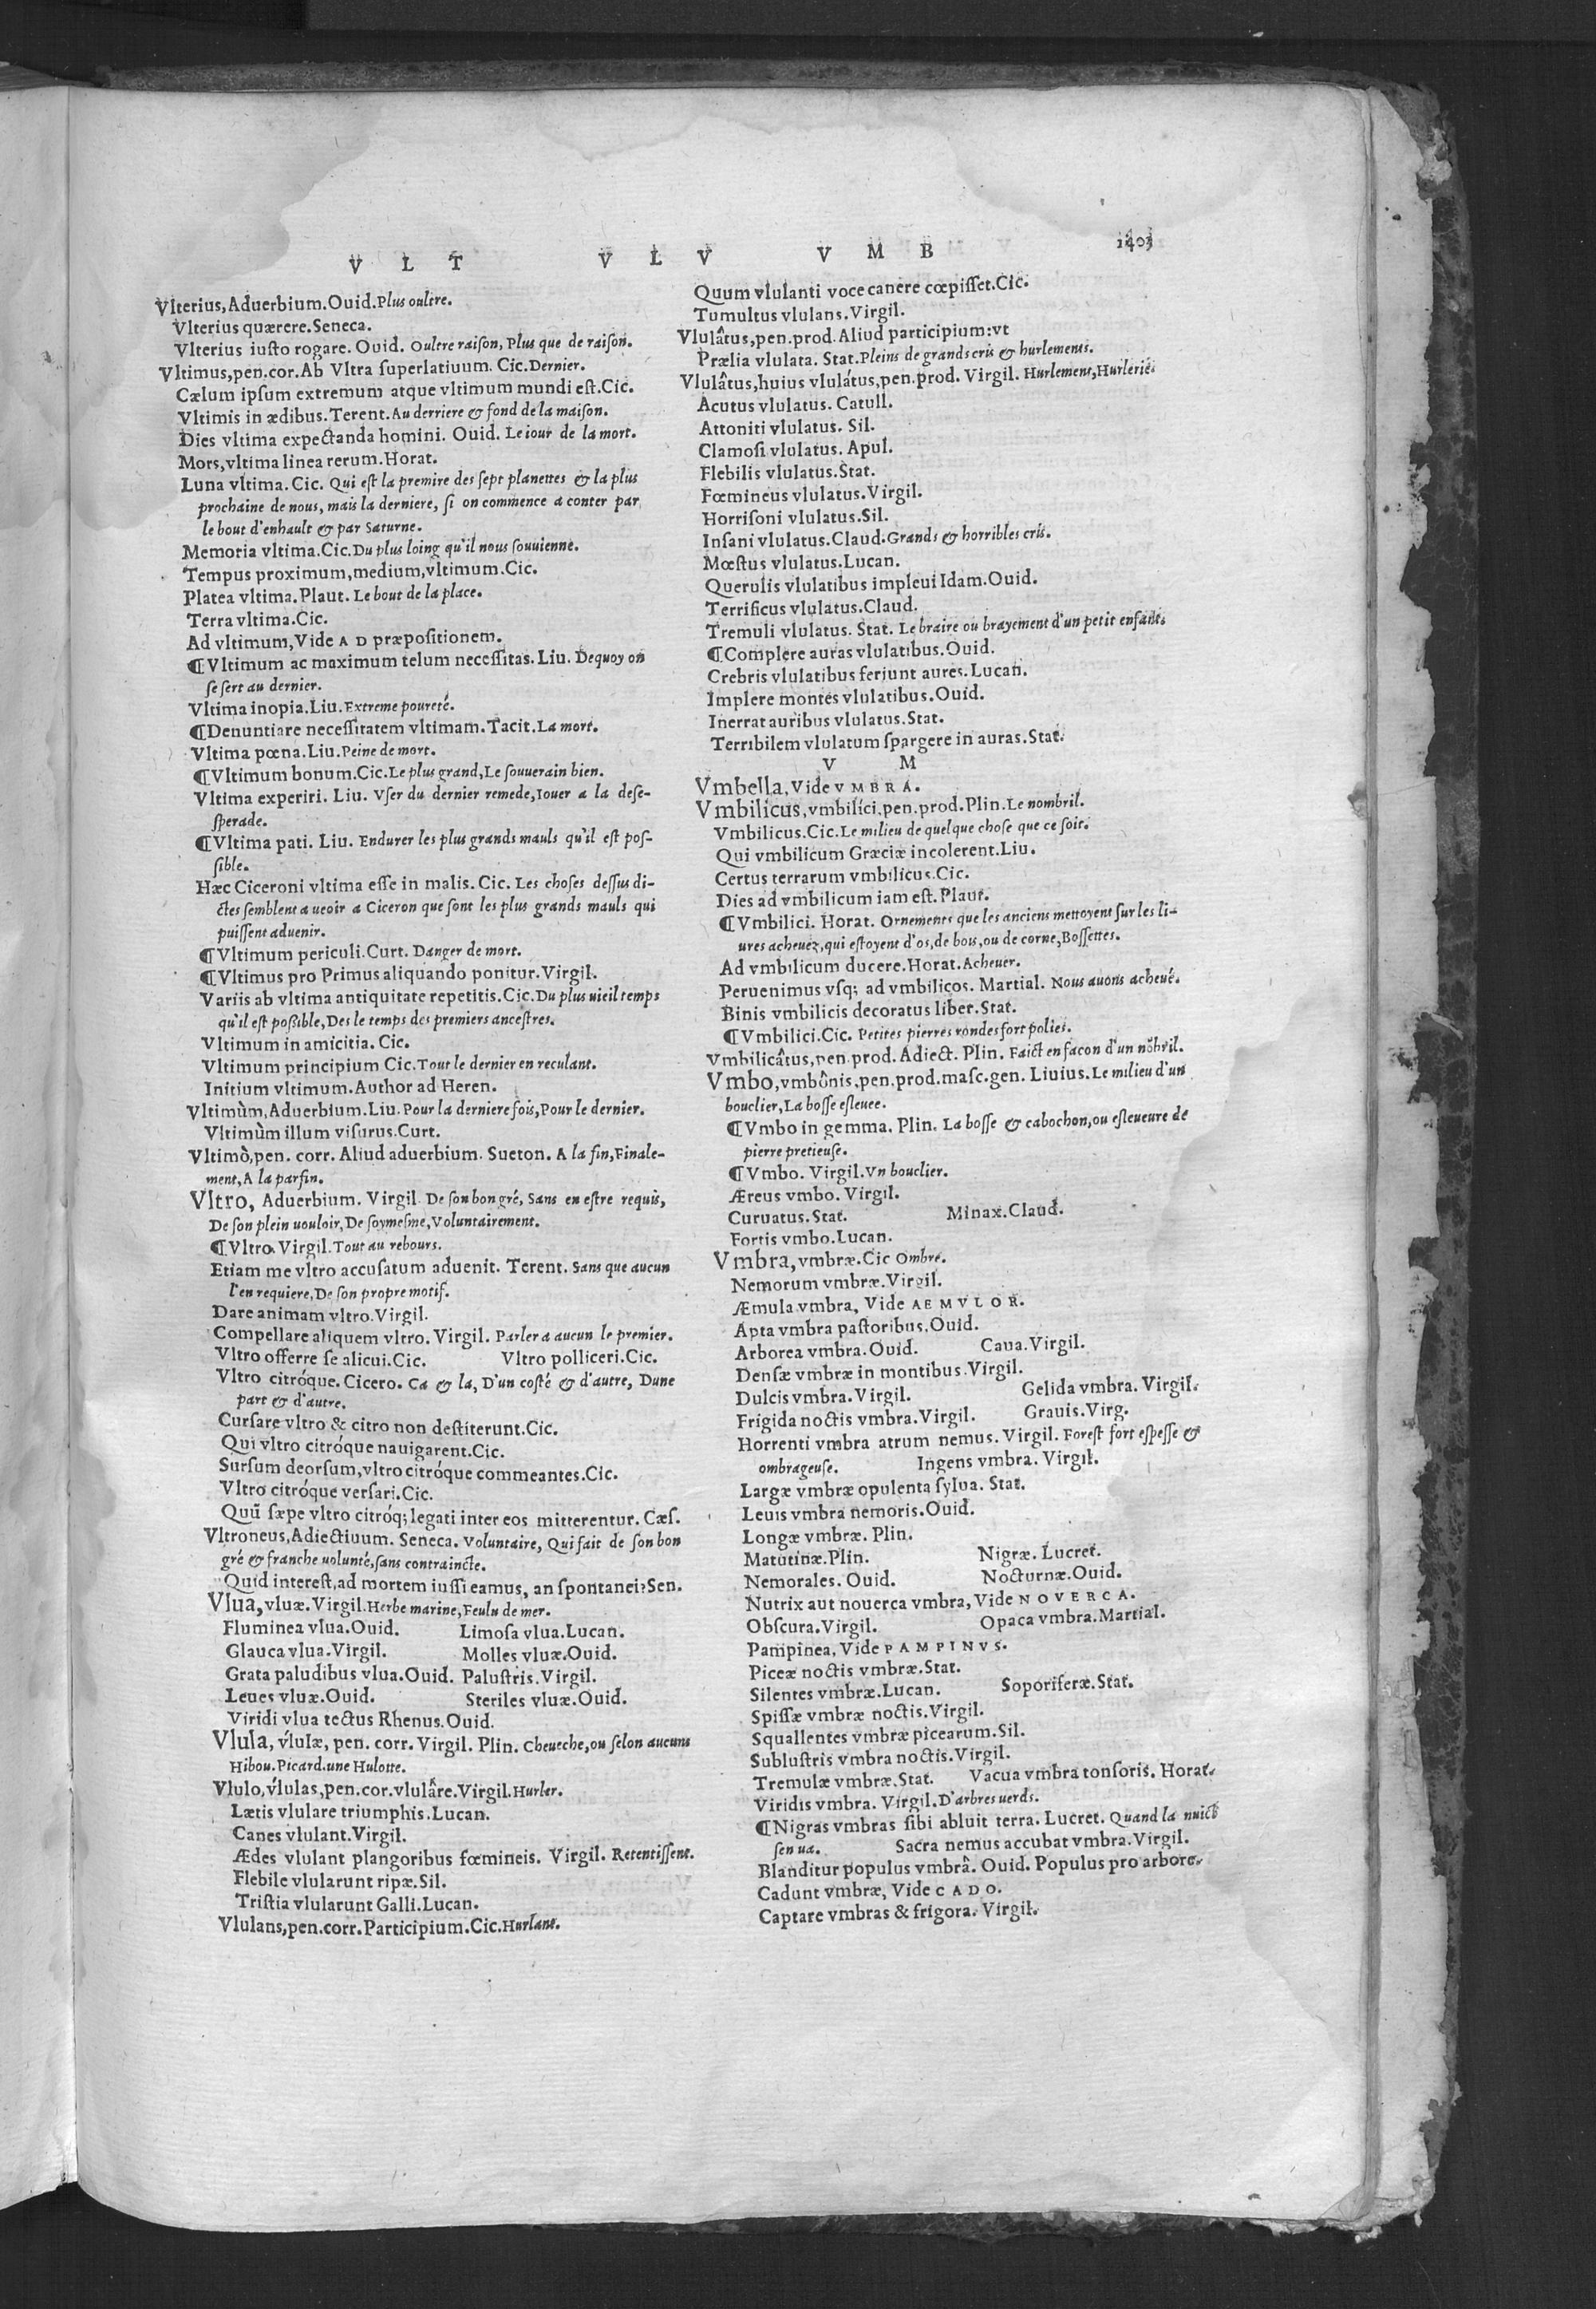 V L T V L V V M B 1403
Vlterius, Aduerbium. Ouid. Plus oultre.
Vlterius quærere. Seneca.
Vlterius iusto rogare. Ouid. Oultre raiſon, Plus que de raiſon.
Vltimus, pen. cor. Ab Vltra ſuperlatiuum. Cic. Dernier.
Cælum ipſum extremum atque vltimum mundi eſt. Cic.
Vltimis in ædibus. Terent. Au derriere & fond de la maiſon.
Dies vltima expectanda homini. Ouid. Le iour de la mort.
Mors, vltima linea rerum. Horat.
Luna vltima. Cic. Qui eſt la premire des ſept planettes & la plus
prochaine de nous, mais la derniere, ſi on commence a conter par
le bout d'enhault & par Saturne.
Memoria vltima. Cic. Du plus loing qu'il nous ſouuienne.
Tempus proximum, medium, vltimum. Cic.
Platea vltima. Plaut. Le bout de la place.
Terra vltima. Cic.
Ad vltimum, Vide A D præpoſitionem.
¶Vltimum ac maximum telum neceſſitas. Liu. Dequoy on
ſe ſert au dernier.
Vltima inopia. Liu. Extreme poureté.
¶Denuntiare neceſſitatem vltimam. Tacit. La mort.
Vltima pœna. Liu. Peine de mort.
¶Vltimum bonum. Cic. Le plus grand, Le ſouuerain bien.
Vltima experiri. Liu. Vſer du dernier remede, Iouer a la deſe-
ſperade.
¶Vltima pati. Liu. Endurer les plus grands mauls qu'il eſt poſ-
ſible.
Hæc Ciceroni vltima eſſe in malis. Cic. Les choſes deſſus di-
ctes ſemblent a ueoir a Ciceron que ſont les plus grands mauls qui
puiſſent aduenir.
¶Vltimum periculi. Curt. Danger de mort.
¶Vltimus pro Primus aliquando ponitur. Virgil.
Variis ab vltima antiquitate repetitis. Cic. Du plus uieil temps
qu'il eſt poſſible, Des le temps des premiers anceſtres.
Vltimum in amicitia. Cic.
Vltimum principium Cic. Tout le dernier en reculant.
Initium vltimum. Author ad Heren.
Vltimùm, Aduerbium. Liu. Pour la derniere fois, Pour le dernier.
Vltimùm illum viſurus. Curt.
Vltimò, pen. corr. Aliud aduerbium. Sueton. A la fin, Finale-
ment, A la parfin.
Vltro, Aduerbium. Virgil. De ſon bon gré, Sans en eſtre requis,
De ſon plein uouloir, De ſoymeſme, Voluntairement.
¶Vltro. Virgil. Tout au rebours.
Etiam me vltro accuſatum aduenit. Terent. Sans que aucun
l'en requiere, De ſon propre motif.
Dare animam vltro. Virgil.
Compellare aliquem vltro. Virgil. Parler a aucun le premier.
Vltro offerre ſe alicui. Cic. Vltro polliceri. Cic.
Vltro citróque. Cicero. Ca & la, D'un coſté & d'autre, Dune
part & d'autre.
Curſare vltro & citro non deſtiterunt. Cic.
Qui vltro citróque nauigarent. Cic.
Surſum deorſum, vltro citróque commeantes. Cic.
Vltro citróque verſari. Cic.
Quũ ſæpe vltro citróq; legati inter eos mitterentur. Cæſ.
Vltroneus, Adiectiuum. Seneca. Voluntaire, Qui fait de ſon bon
gré & franche uolunté, ſans contraincte.
Quid intereſt, ad mortem iuſſi eamus, an ſpontanei? Sen.
Vlua, vluæ. Virgil. Herbe marine, Feulu de mer.
Fluminea vlua. Ouid. Limoſa vlua. Lucan.
Glauca vlua. Virgil. Molles vluæ. Ouid.
Grata paludibus vlua. Ouid. Paluſtris. Virgil.
Leues vluæ. Ouid. Steriles vluæ. Ouid.
Viridi vlua tectus Rhenus. Ouid.
Vlula, v́lulæ, pen. corr. Virgil. Plin. Cheueche, ou ſelon aucuns
Hibou. Picard. une Hulotte.
Vlulo, v́lulas, pen. cor. vlulâre. Virgil. Hurler.
Lætis vlulare triumphis. Lucan.
Canes vlulant. Virgil.
Ædes vlulant plangoribus fœmineis. Virgil. Retentiſſent.
Flebile vlularunt ripæ. Sil.
Triſtia vlularunt Galli. Lucan.
Vlulans, pen. corr. Participium. Cic. Hurlant.
Quum vlulanti voce canere cœpiſſet. Cic.
Tumultus vlulans. Virgil.
Vlulâtus, pen. prod. Aliud participium: vt
Prælia vlulata. Stat. Pleins de grands cris & hurlements.
Vlulâtus, huius vlulátus, pen. prod. Virgil. Hurlement, Hurlerie.
Acutus vlulatus. Catull.
Attoniti vlulatus. Sil.
Clamoſi vlulatus. Apul.
Flebilis vlulatus. Stat.
Fœmineus vlulatus. Virgil.
Horriſoni vlulatus. Sil.
Inſani vlulatus. Claud. Grands & horribles cris.
Mœſtus vlulatus. Lucan.
Querulis vlulatibus impleui Idam. Ouid.
Terrificus vlulatus. Claud.
Tremuli vlulatus. Stat. Le braire ou brayement d'un petit enfant.
¶Complere auras vlulatibus. Ouid.
Crebris vlulatibus feriunt aures. Lucan.
Implere montes vlulatibus. Ouid.
Inerrat auribus vlulatus. Stat.
Terribilem vlulatum ſpargere in auras. Stat.
V M
Vmbella, Vide V M B R A.
Vmbilicus, vmbilíci, pen. prod. Plin. Le nombril.
Vmbilicus. Cic. Le milieu de quelque choſe que ce ſoit.
Qui vmbilicum Græciæ incolerent. Liu.
Certus terrarum vmbilicus. Cic.
Dies ad vmbilicum iam eſt. Plaut.
¶Vmbilici. Horat. Ornements que les anciens mettoyent ſur les li-
ures acheuez, qui eſtoyent d'os, de bois, ou de corne, Boſſettes.
Ad vmbilicum ducere. Horat. Acheuer.
Peruenimus vſq; ad vmbilicos. Martial. Nous auons acheué.
Binis vmbilicis decoratus liber. Stat.
¶Vmbilici. Cic. Petites pierres rondes fort polies.
Vmbilicâtus, pen. prod. Adiect. Plin. Faict en facon d'un nõbril.
Vmbo, vmbônis, pen. prod. maſc. gen. Liuius. Le milieu d'un
bouclier, La boſſe eſleuee.
¶Vmbo in gemma. Plin. La boſſe & cabochon, ou eſleueure de
pierre pretieuſe.
¶Vmbo. Virgil. Vn bouclier.
Æreus vmbo. Virgil.
Curuatus. Stat. Minax. Claud.
Fortis vmbo. Lucan.
Vmbra, vmbræ. Cic Ombre.
Nemorum vmbræ. Virgil.
Æmula vmbra, Vide AE M V L O R.
Apta vmbra paſtoribus. Ouid.
Arborea vmbra. Ouid. Caua. Virgil.
Denſæ vmbræ in montibus. Virgil.
Dulcis vmbra. Virgil. Gelida vmbra. Virgil.
Frigida noctis vmbra. Virgil. Grauis. Virg.
Horrenti vmbra atrum nemus. Virgil. Foreſt fort eſpeſſe &
ombrageuſe. Ingens vmbra. Virgil.
Largæ vmbræ opulenta ſylua. Stat.
Leuis vmbra nemoris. Ouid.
Longæ vmbræ. Plin.
Matutinæ. Plin. Nigræ. Lucret.
Nemorales. Ouid. Nocturnæ. Ouid.
Nutrix aut nouerca vmbra, Vide N O V E R C A.
Obſcura. Virgil. Opaca vmbra. Martial.
Pampinea, Vide P A M P I N V S.
Piceæ noctis vmbræ. Stat.
Silentes vmbræ. Lucan. Soporiferæ. Stat.
Spiſſæ vmbræ noctis. Virgil.
Squallentes vmbræ picearum. Sil.
Subluſtris vmbra noctis. Virgil.
Tremulæ vmbræ. Stat. Vacua vmbra tonſoris. Horat.
Viridis vmbra. Virgil. D'arbres uerds.
¶Nigras vmbras ſibi abluit terra. Lucret. Quand la nuict
ſen ua. Sacra nemus accubat vmbra. Virgil.
Blanditur populus vmbrâ. Ouid. Populus pro arbore.
Cadunt vmbræ, Vide C A D O.
Captare vmbras & frigora. Virgil.